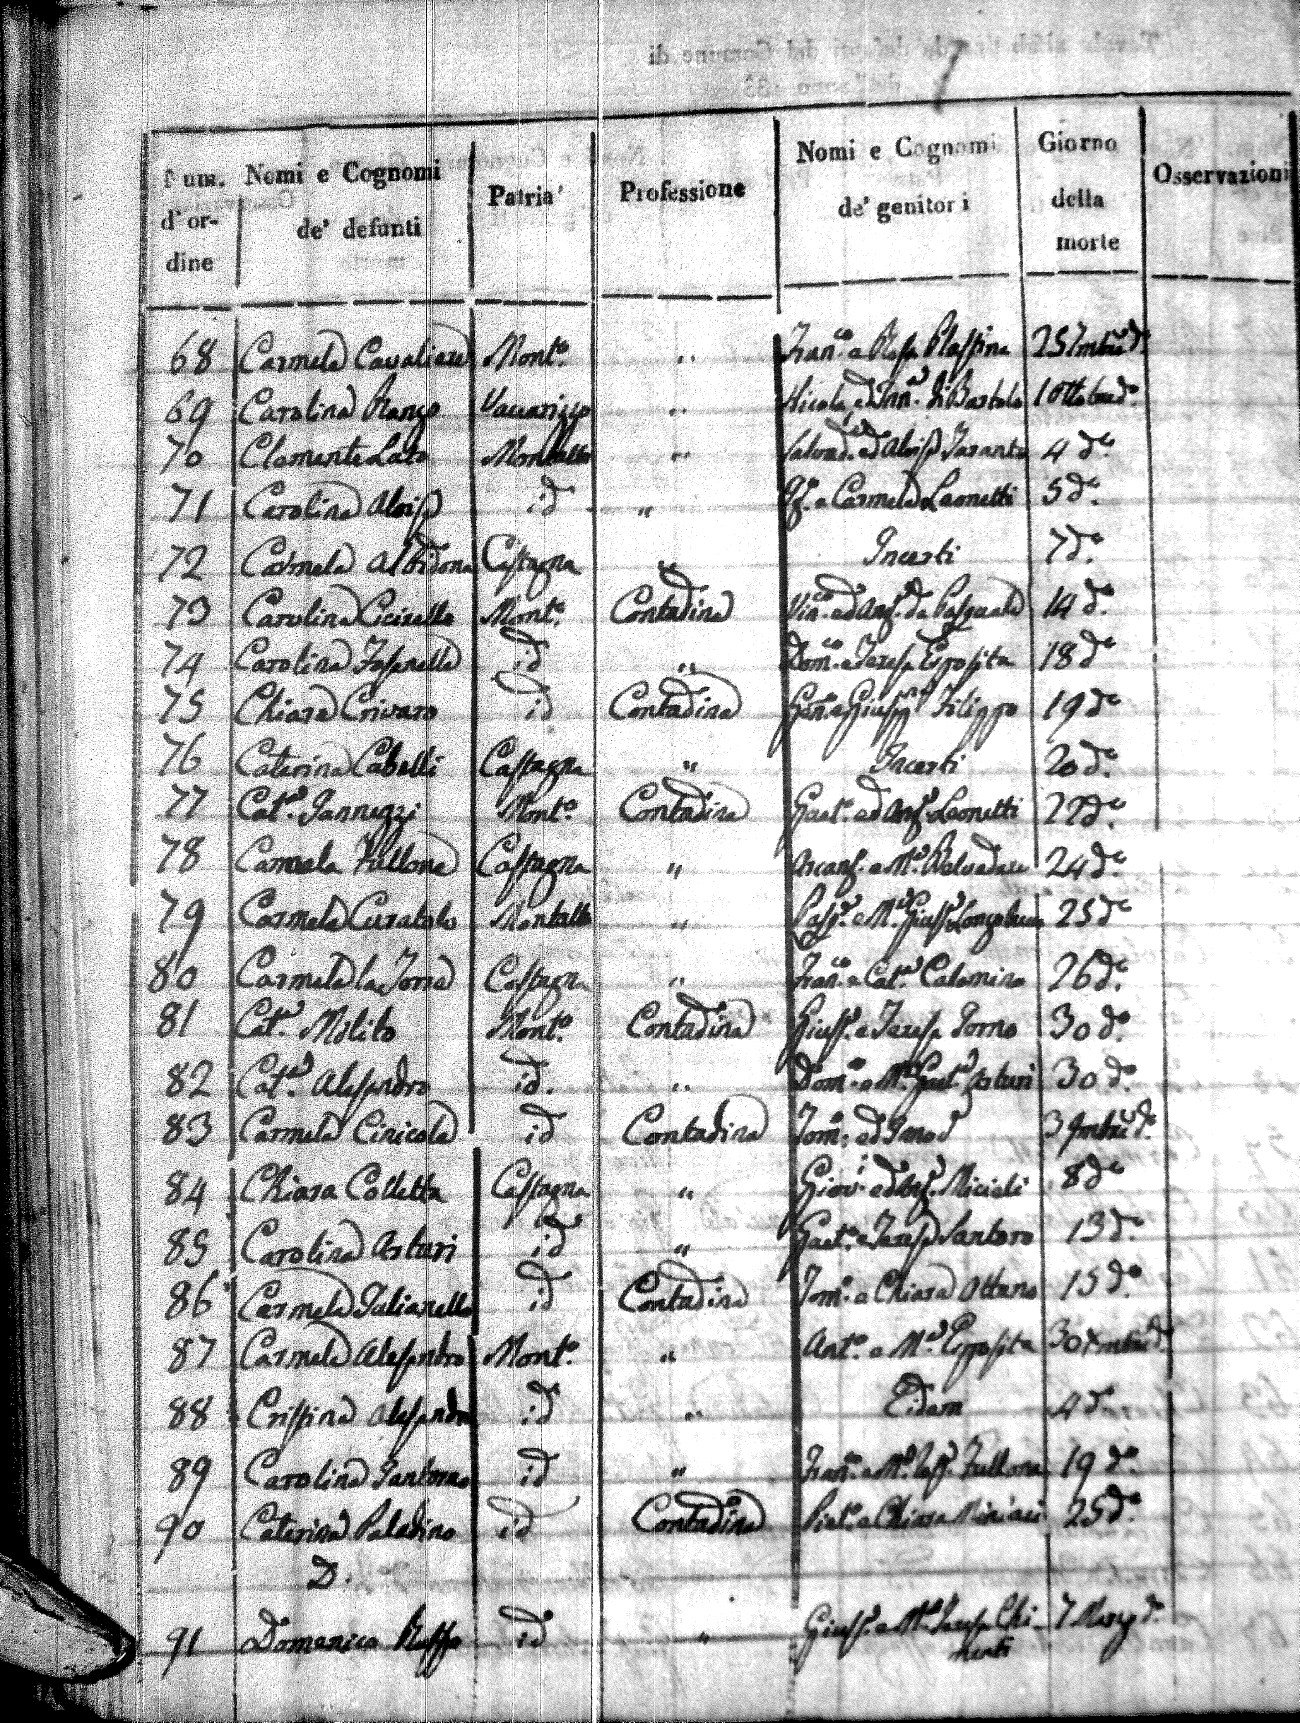 Num. d'or- dine | Nomi e Cognomi de' defunti | Patria | Professione | Nomi e Cognomi de' genitori | Giorno della morte | Osservazioni
68 Carmela Cavaliere Mont.º " Fran.co e Rosa 25 7mbre d.º
69 Carolina Vaccarizzo " Nicola ed di Bartolo 1 Ottobre d.º
70 Clemente Lato Montalto " ed Aloisa Taranto 4 d.º
71 Carolina Aloisa id " e Carmela Leonetti 5 d.º
72 Carmela Albidona Castagna " Incerti 7 d.º
73 Carolina Cicirello Mont.º Contadina Vin.co ed Ang.a de Pasquale 14 d.º
74 Carolina Fasanella id " Dom.co e Teresa Esposita 18 d.º
75 Chiara Crivaro id Contadina Filippo 19 d.º
76 Caterina Cabelli Castagna " Incerti 20 d.º
77 Cat.a Iannuzzi Mont.º Contadina Gaet.º ed Ang.a Leonetti 22 d.º
78 Carmela Fullone Castagna " Arcang.º e M.a Belvedere 24 d.º
79 Carmela Curatolo Montalto " e M.a Gius.a 25 d.º
80 Carmela la Torre Castagna " Fran.co e Cat.a 26 d.º
81 Cat.a Milito Mont.º Contadina Gius.e e Teresa 30 d.º
82 Cat.a Alesandro id. " Dom.co e M.a Gaet.a Asturi 30 d.º
83 Carmela Ciricola id Contadina Tom.º ed 3 9mbre d.º
84 Chiara Colletta Castagna " Giov.i ed Ang.a Micieli 8 d.º
85 Carolina Asturi id " Gaet.º e Teresa Santoro 13 d.º
86 Carmela Iulianello id Contadina Tom.º e Chiara 15 d.º
87 Carmela Alesandro Mont.º " Ant.º e M.a Esposita 3 Xmbre d.º
88 Crispina Alesandro id " Eidem 4 d.º
89 Carolina id " Fran.co e M.a Fullone 19 d.º
90 Caterina Paladino id Contadina e Chiara 25 d.º
D.
91 Domenico Ruffo id " Gius.e e M.a Teresa Chi- 7 Marzo d.º
menti